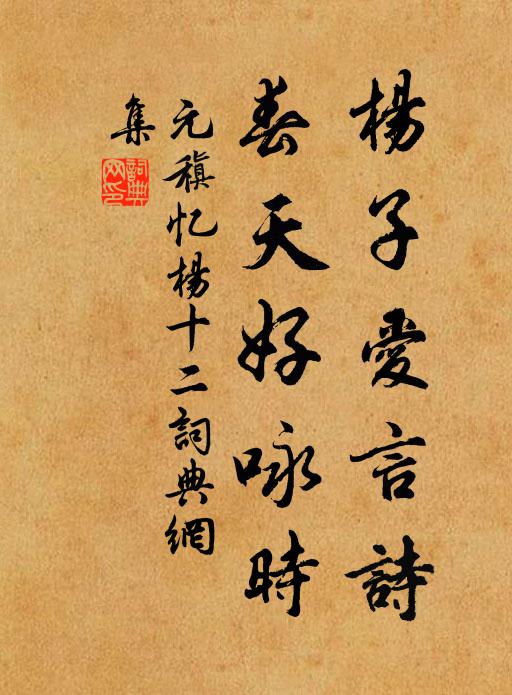 楊子愛言詩
春天好咏時
元稹忆楊十二詞典網
集
詞典
网印